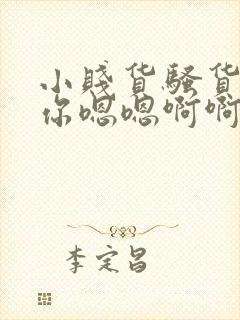 小贱货骚货
你嗯嗯啊啊
李定昌